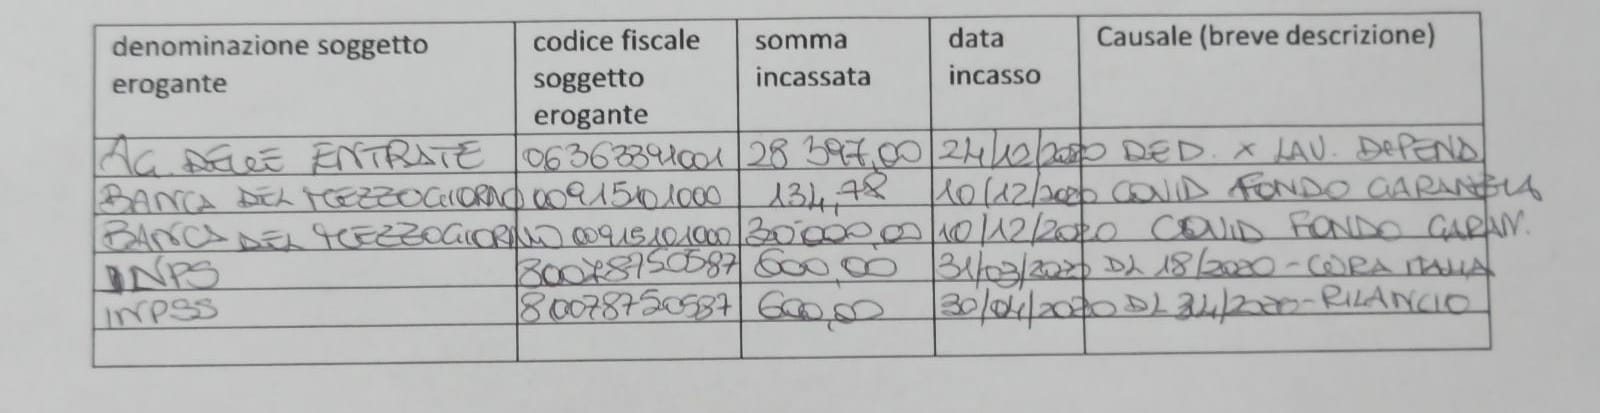 denominazione soggetto erogante codice fiscale soggetto erogante somma incassata data incasso Causale (breve descrizione)
AG. DELLE ENTRATE 06363391001 28 397,00 24/12/2020 DED. X LAV. DEPEND
BANCA DEL MEZZOGIORNO 00915101000 134,78 10/12/2020 COVID FONDO GARANZIA
BANCA DEL MEZZOGIORNO 00915101000 30.000,00 10/12/2020 COVID FONDO GARAN.
INPS 80078750587 600,00 31/03/2020 DL 18/2020 - CURA ITALIA
INPSS 80078750587 600,00 30/04/2020 DL 34/2020 - RILANCIO